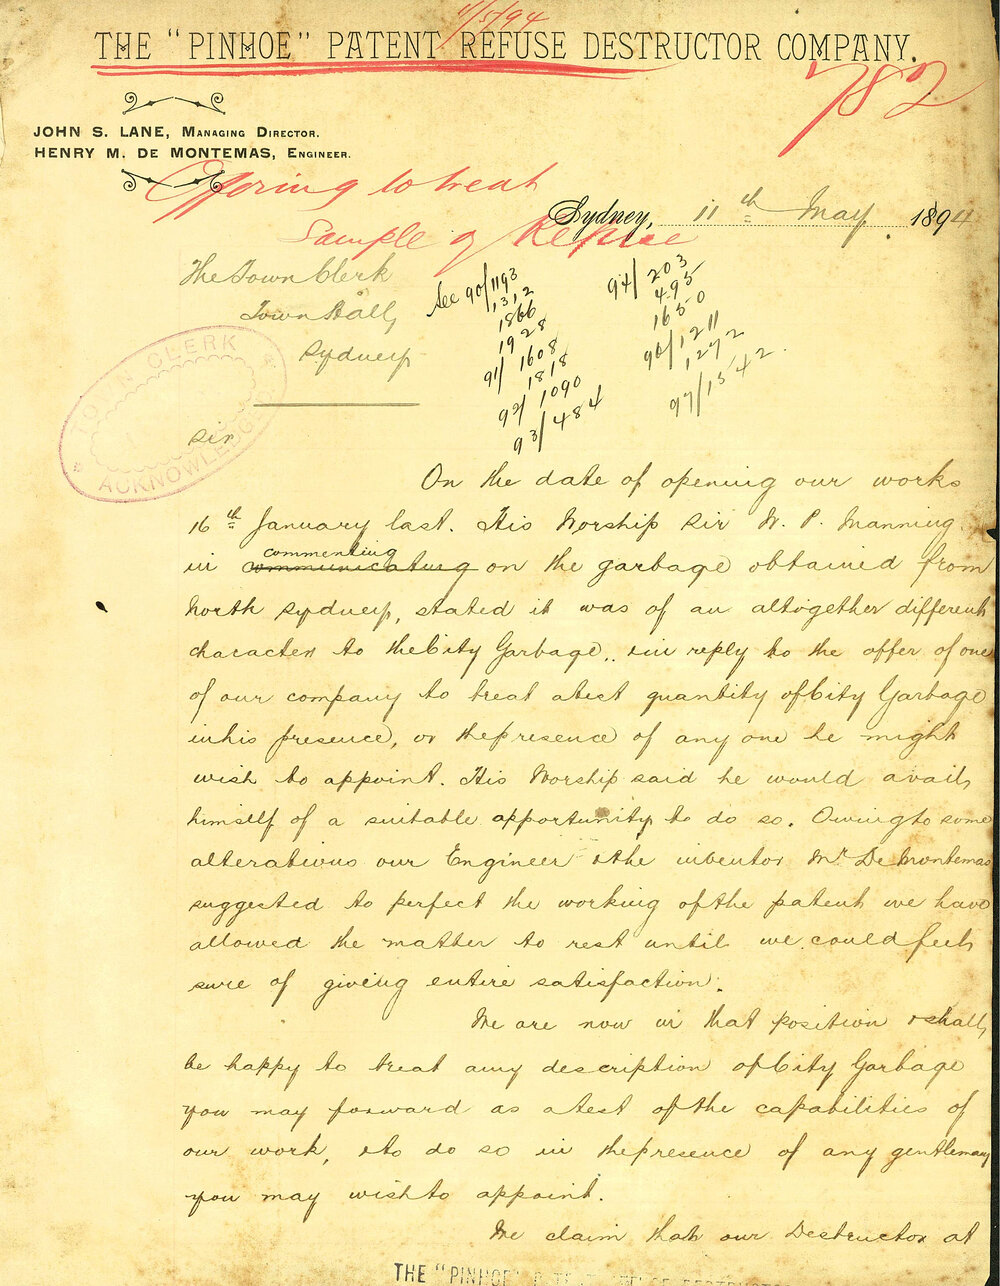 11/5/94
THE "PINHOE" PATENT REFUSE DESTRUCTOR COMPANY.
782
JOHN S. LANE, MANAGING DIRECTOR.
HENRY M. DE MONTEMAS, ENGINEER.
Offering to treat
Sample of Refuse
Sydney, 11th May 1894
The Town Clerk
Town Hall,
Sydney
See 90/1193
1312
1866
1928
91/1608
1818
92/1090
93/484
94/203
495
1650
96/1211
1272
97/1342
TOWN CLERK
ACKNOWLEDGED
Sir
On the date of opening our works
16th January last. His Worship Sir W. P. Manning
in communicating commenting on the garbage obtained from
North Sydney, stated it was of an altogether different
character to the City Garbage, in reply to the offer of one
of our company to treat a test quantity of City Garbage
in his presence, or the presence of any one he might
wish to appoint. His Worship said he would avail
himself of a suitable opportunity to do so. Owing to some
alterations our Engineer & the inventor Mr De Montemas
suggested to perfect the working of the patent we have
allowed the matter to rest until we could feel
sure of giving entire satisfaction.
We are now in that position & shall
be happy to treat any description of City Garbage
you may forward as a test of the capabilities of
our work, & to do so in the presence of any gentleman
you may wish to appoint.
We claim that our Destructor at
THE "PINHOE"